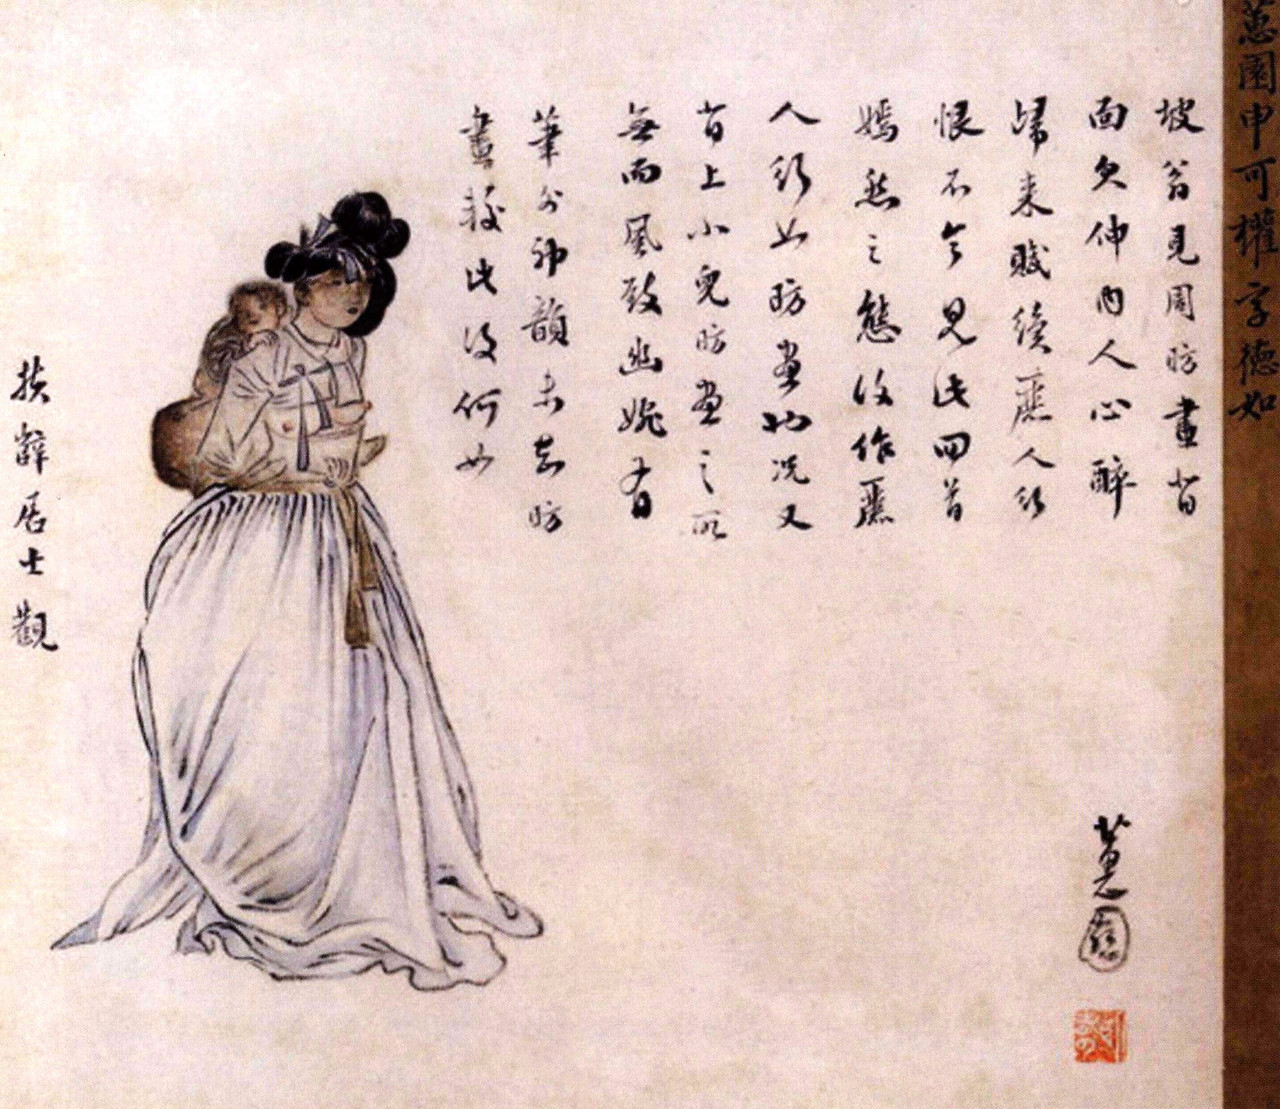 蕙園申可權字德如
坡翁見周昉畫背
面欠伸內人心醉
歸来賦續麗人行
恨不令見此回首
嫣然之態復作麗
人行如昉畫也况又
背上小兒昉畫之所
無而風致幽婉有
筆外神韻未知昉
畫較此復何如
扶辭居士觀
蕙園